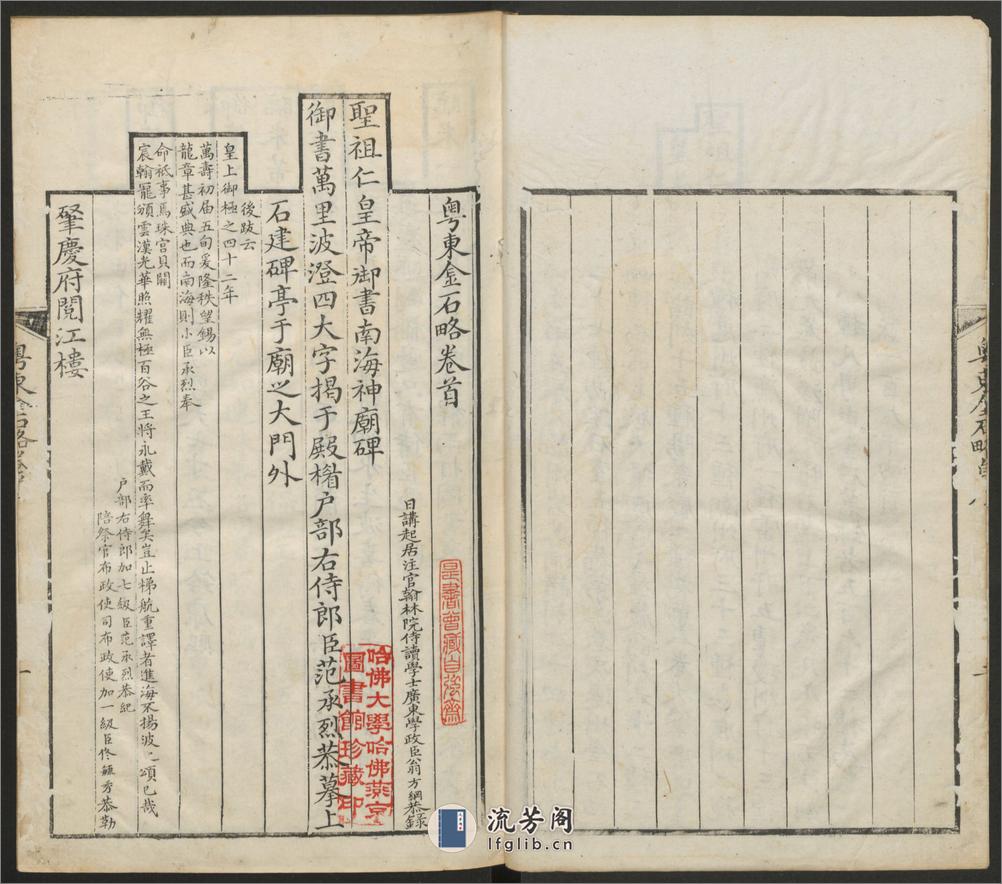 粵東金石略卷首
日講起居注官翰林院侍讀學士廣東學政臣翁方綱恭錄
聖祖仁皇帝御書南海神廟碑
御書萬里波澄四大字揭于殿楣户部右侍郎臣范承烈恭摹上
石建碑亭于廟之大門外
後跋云
皇上御極之四十二年
萬壽初届五旬爰隆秩望錫以
龍章甚盛典也而南海則小臣承烈奉
命祇事焉珠宫貝闕
宸翰寵頒雲漢光華照耀無極百谷之王將永戴而率舞矣豈止梯航重譯者進海不揚波之頌已哉
户部右侍郎加七級臣范承烈恭紀
陪祭官布政使司布政使加一級臣佟毓秀恭勒
肇慶府閲江樓
粵東金石略卷首
一
是書曾藏自強齋
哈佛大學哈佛燕京
圖書館珍藏印
流芳阁
lfglib.cn